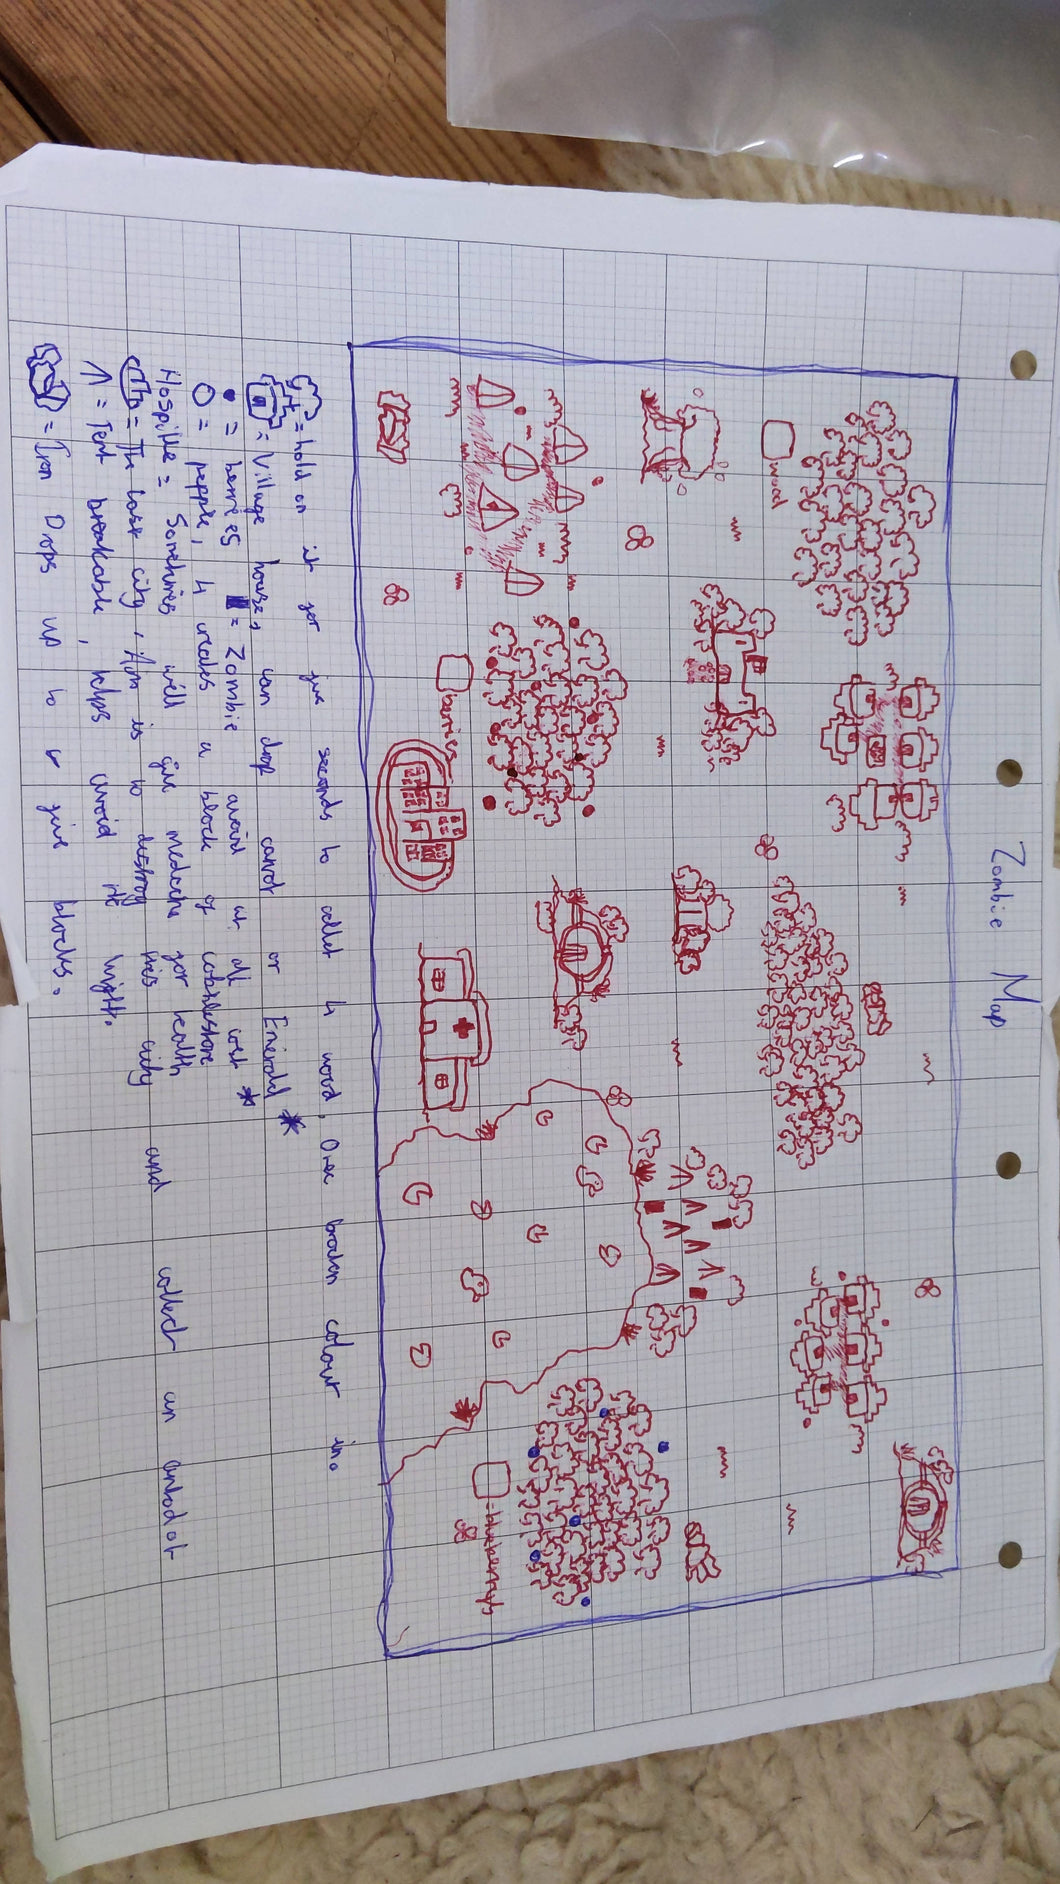 Zombie Map
wood
barries
= hold on it for five seconds to collet 4 wood. Once broken colour in.
= Village house, can drop carrot or Emerald *
= berries = Zombie avoid at all cost *
= pepple, 4 creates a block of cobblestone
Hospitle = Somtimes will give medacine for health
= The lost city, Aim is to destroy this city and collect an antodot
= Tent breakable, helps avoid the night.
= Iron Drops up to five blocks.